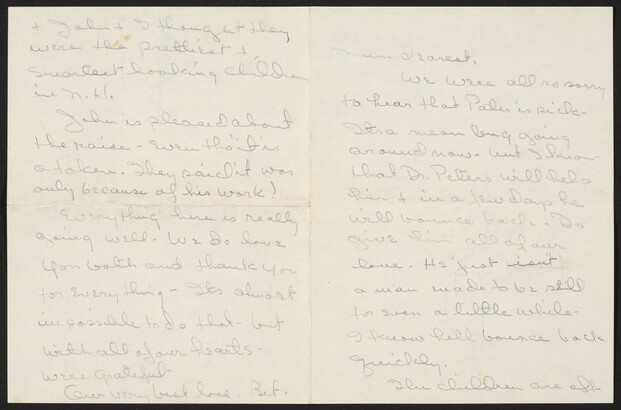 Mum Dearest,
We were all so sorry
to hear that Pater is sick -
Its a mean bug going
around now - but I know
that Dr. Peters will help
him + in a few days he
will bounce back - Do
give him all of our
love - He just isn't
a man made to be still
for even a little while -
I know he'll bounce back
quickly.
The children are all
+ John + I thought they
were the prettiest +
smartest looking children
in N.H!
John is pleased about
the raise - even tho' it is
a token. They said it was
only because of his work!
Everything here is really
going well - We do love
you both and thank you
for everything - Its almost
impossible to do that - but
with all of our hearts -
we're grateful
Our very best love, Bet.